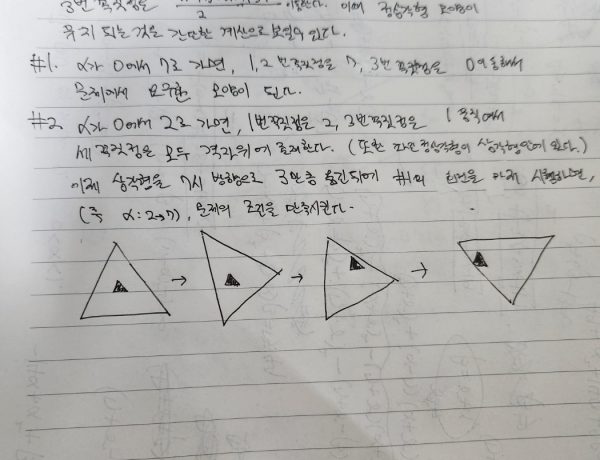 3번 꼭짓점은 2 이동한다. 이때 정삼각형 모양이
유지 되는 것을 간단한 계산으로 보일수 있다.
#1. α가 0에서 7로 가면, 1, 2번 꼭짓점은 7, 3번 꼭짓점은 0에
문제에서 요구한 모양이 된다.
#2 α가 0에서 2로 가면, 1번꼭짓점은 2, 3번꼭짓점은 1
세 꼭짓점은 모두 격자위에 존재한다. (또한 정삼각형이 삼각형안에 있다.)
이제 삼각형을 시 방향으로 3만큼 #1의
(즉 α: 2→7), 문제의 조건을 만족시킨다.